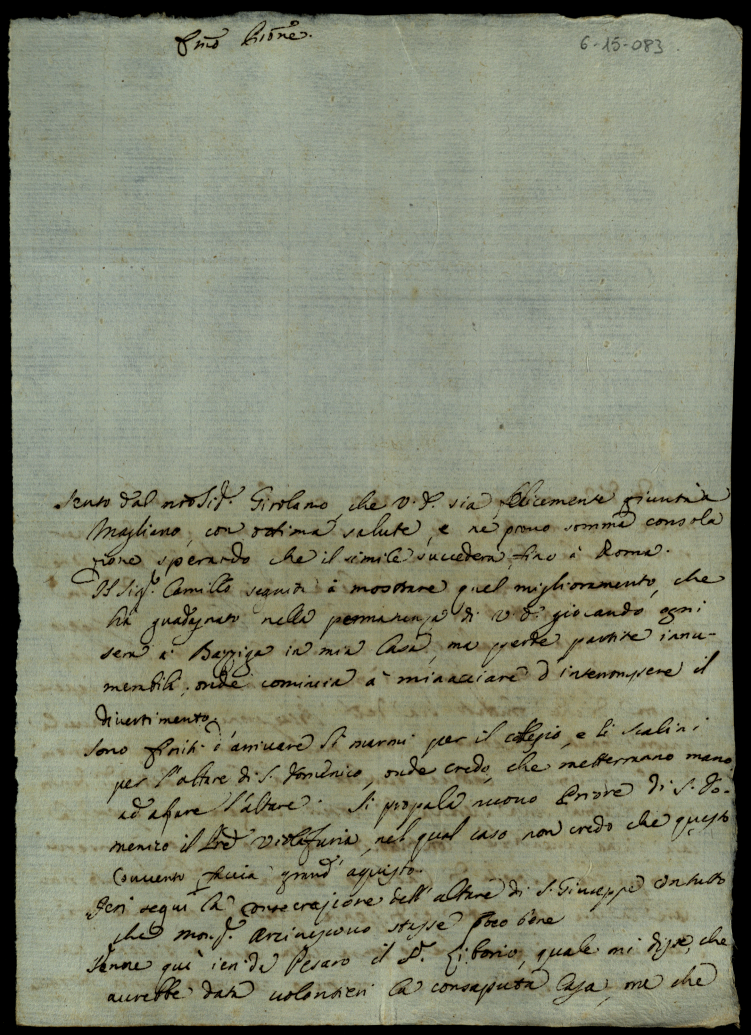 6-15-083
P̃rõne.
Sento dal nr̃o Sig.r Girolamo, che V. S. sia felicemente giunta a
Magliano, con ottima salute, e ne provo somma consola
zione sperando che il simile succederà fino à Roma.
Il Sig.r Camillo seguita à mostrare quel miglioramento, che
hà guadagnato nella permanenza di V. S. giocando ogni
sera à Bazziga in mia Casa, ma perde partite innu-
merabili, onde comincia à minacciare d'interrompere il
divertimento.
Sono finiti d'arrivare li marmi per il , e li scalini
per l'altare di S. Domenico, onde credo, che metteranno mano
ad l'altare. Si propala nuovo Priore di S. Do-
menico il Pred.e , nel qual caso non credo che questo
Convento faccia grand'aquisto.
Ieri seguì la consecrazione dell'altare di S. Giuseppe con tutto
che Mons.r Arcivescovo stasse poco bene
Venne qui ieri da Pesaro il S.r Liborio, quale mi disse, che
avrebbe data volontieri la consaputa Casa, ma che